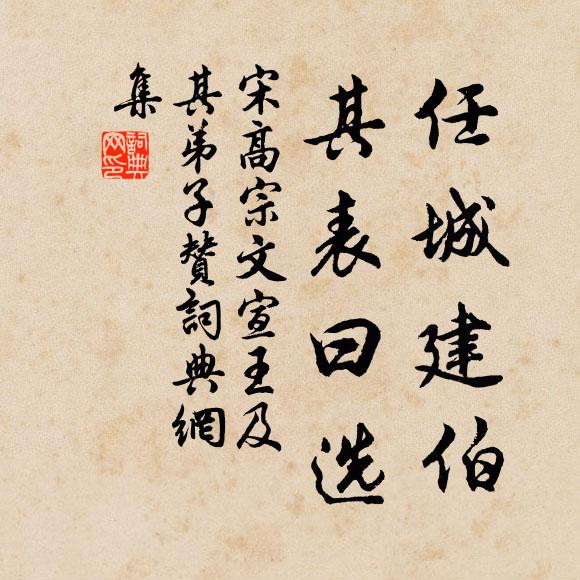 任城建伯
其表曰选
宋高宗文宣王及
其弟子赞詞典網
集
詞典網印